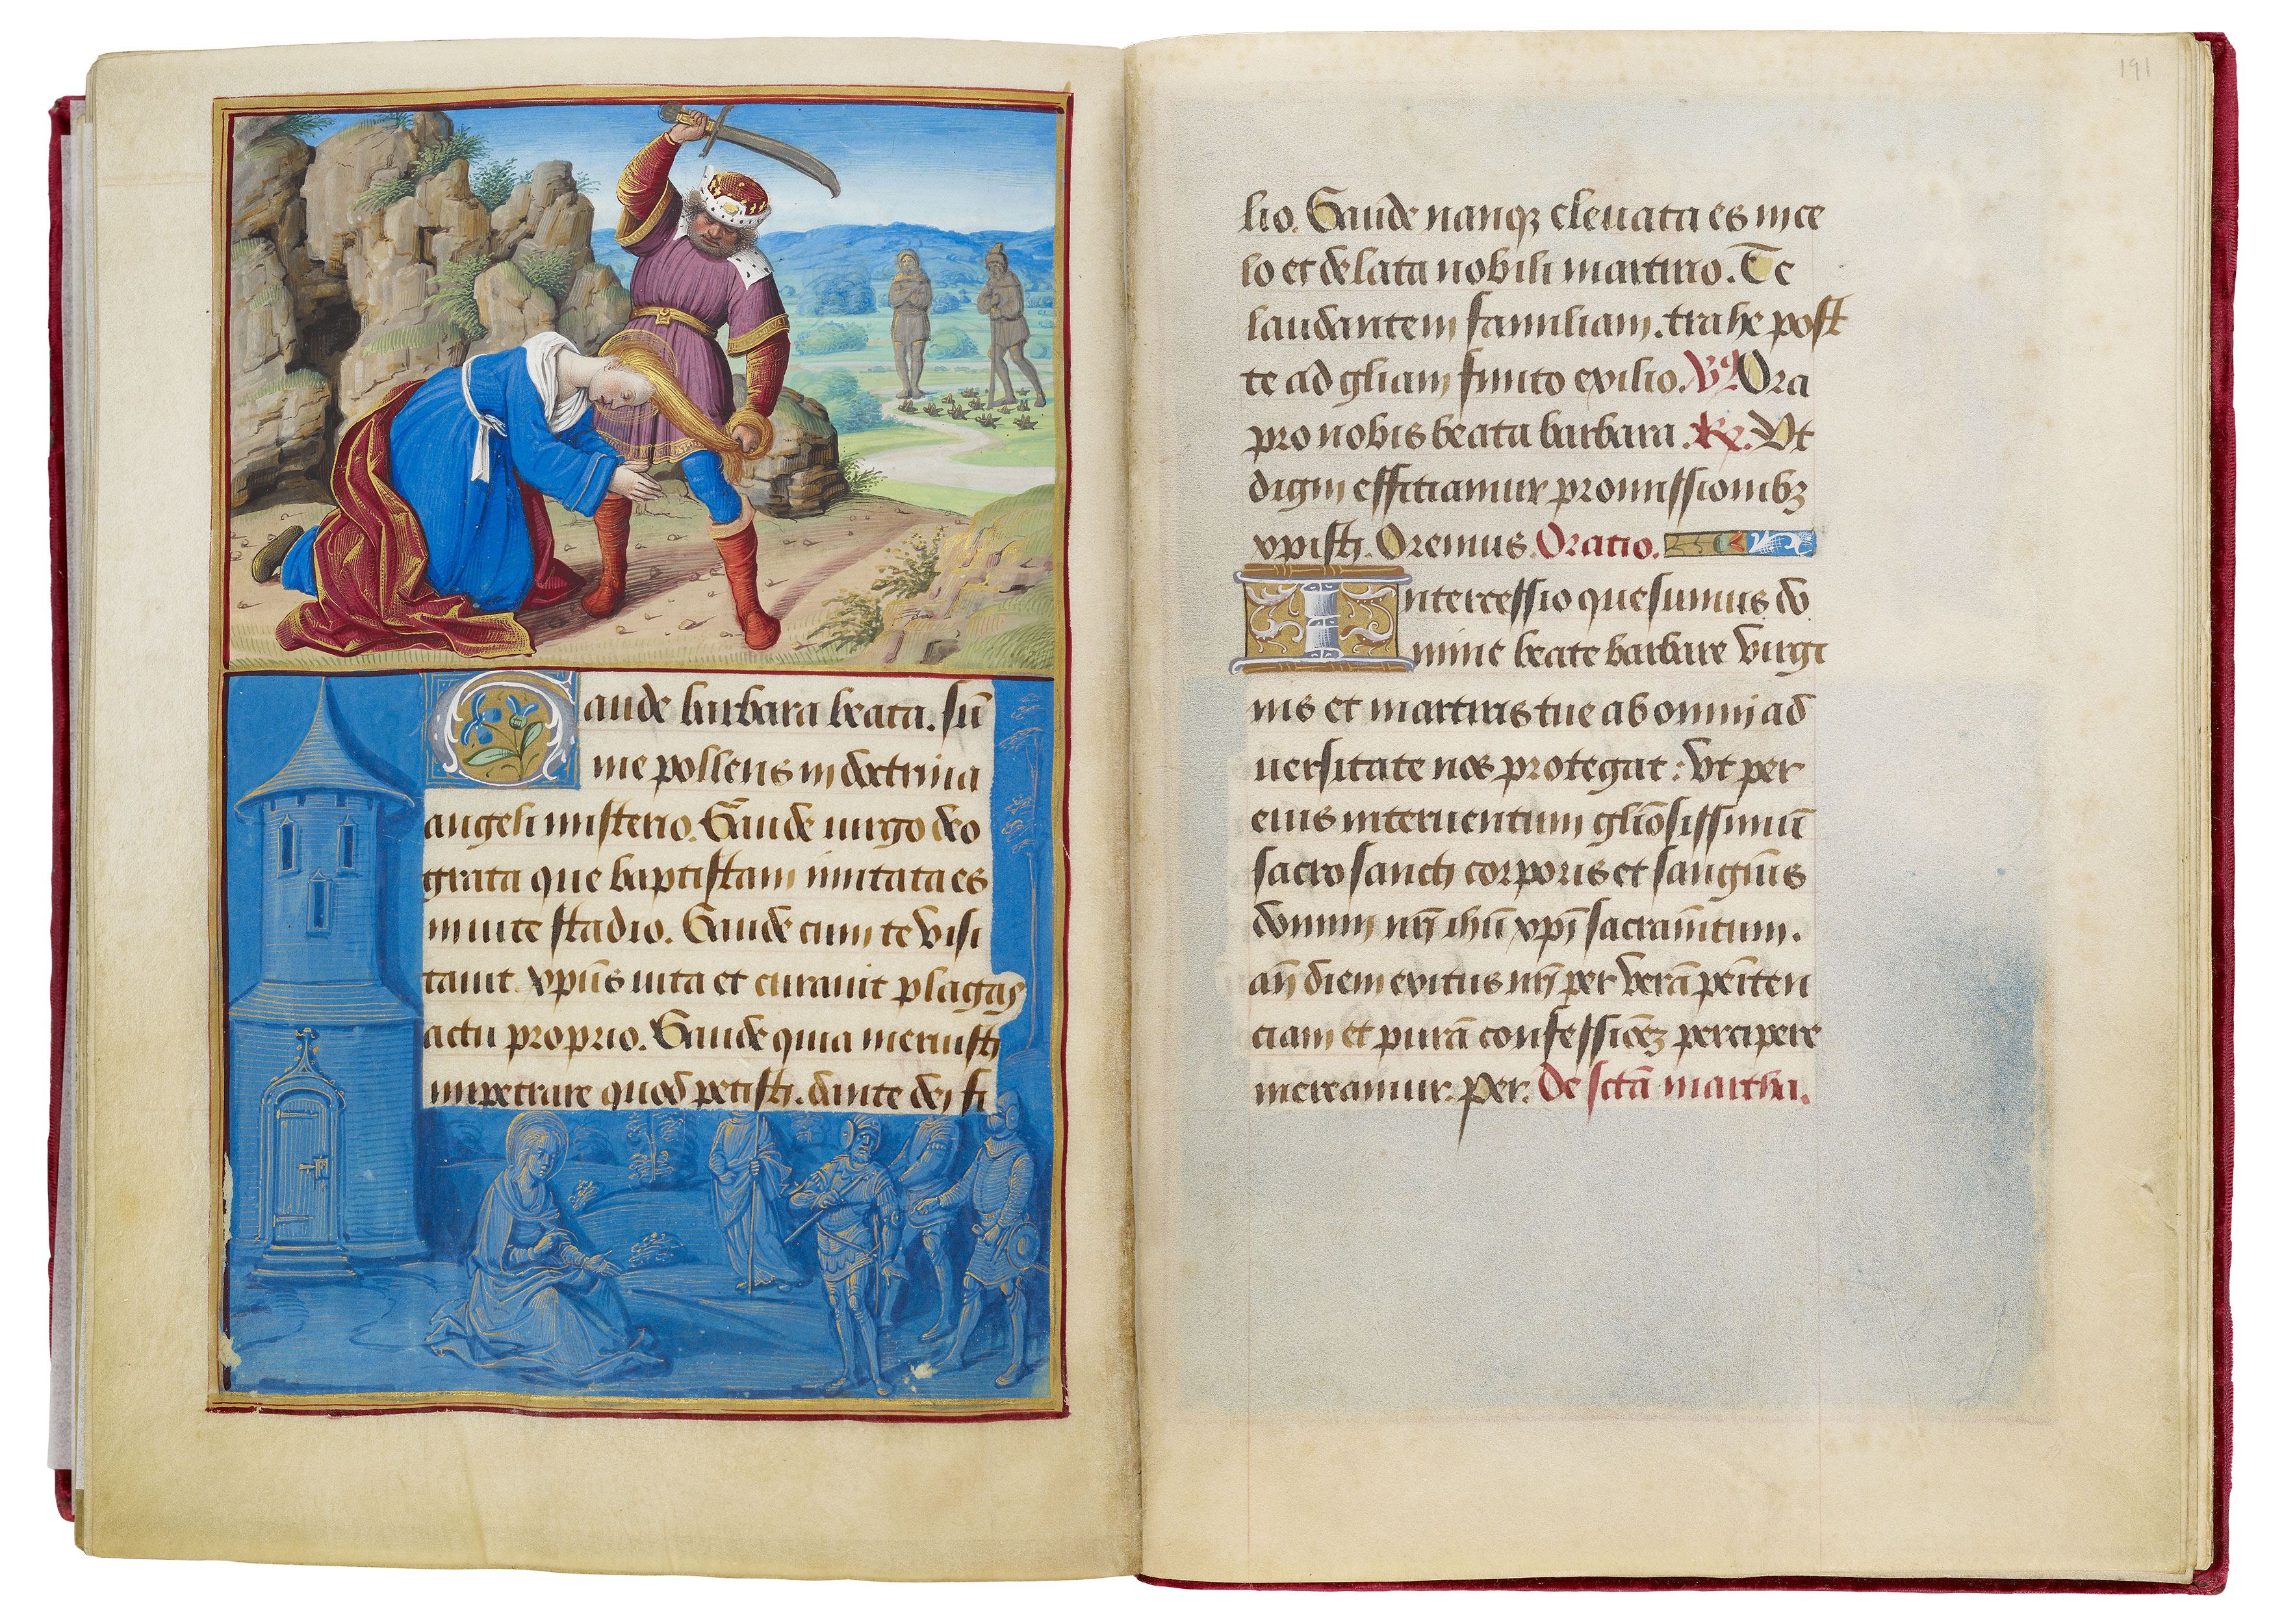 Gaude barbara beata. sū
me pollens in doctrina
angeli misterio. Gaude uirgo deo
grata que baptistam imitata es
in uite stadio. Gaude cum te visi
tauit xpūs uita et curauit plagas
actu proprio. Gaude quia meruisti
impetrare quod petisti. dante dei fi
191
lio. Gaude nanqꝫ eleuata es in ce
lo et delata nobili martirio. Te
laudantem familiam. trahe post
te ad gliam finito exilio. V⁹ Ora
pro nobis beata barbara. ℟. Vt
digni efficiamur promissionibꝫ
xpisti. Oremus. Oratio.
Intercessio quesumus do
mine beate barbare virgi
nis et martiris tue ab omni ad
uersitate nos protegat: vt per
eius interuentum gliōsissimū
sacrosancti corporis et sanguīs
domini nr̄i ihū xpī sacramētum.
an̄ diem exitus nr̄i per verā penitēn
ciam et purā confessiōeꝫ percipere
mereamur. Per. De sctā martha.